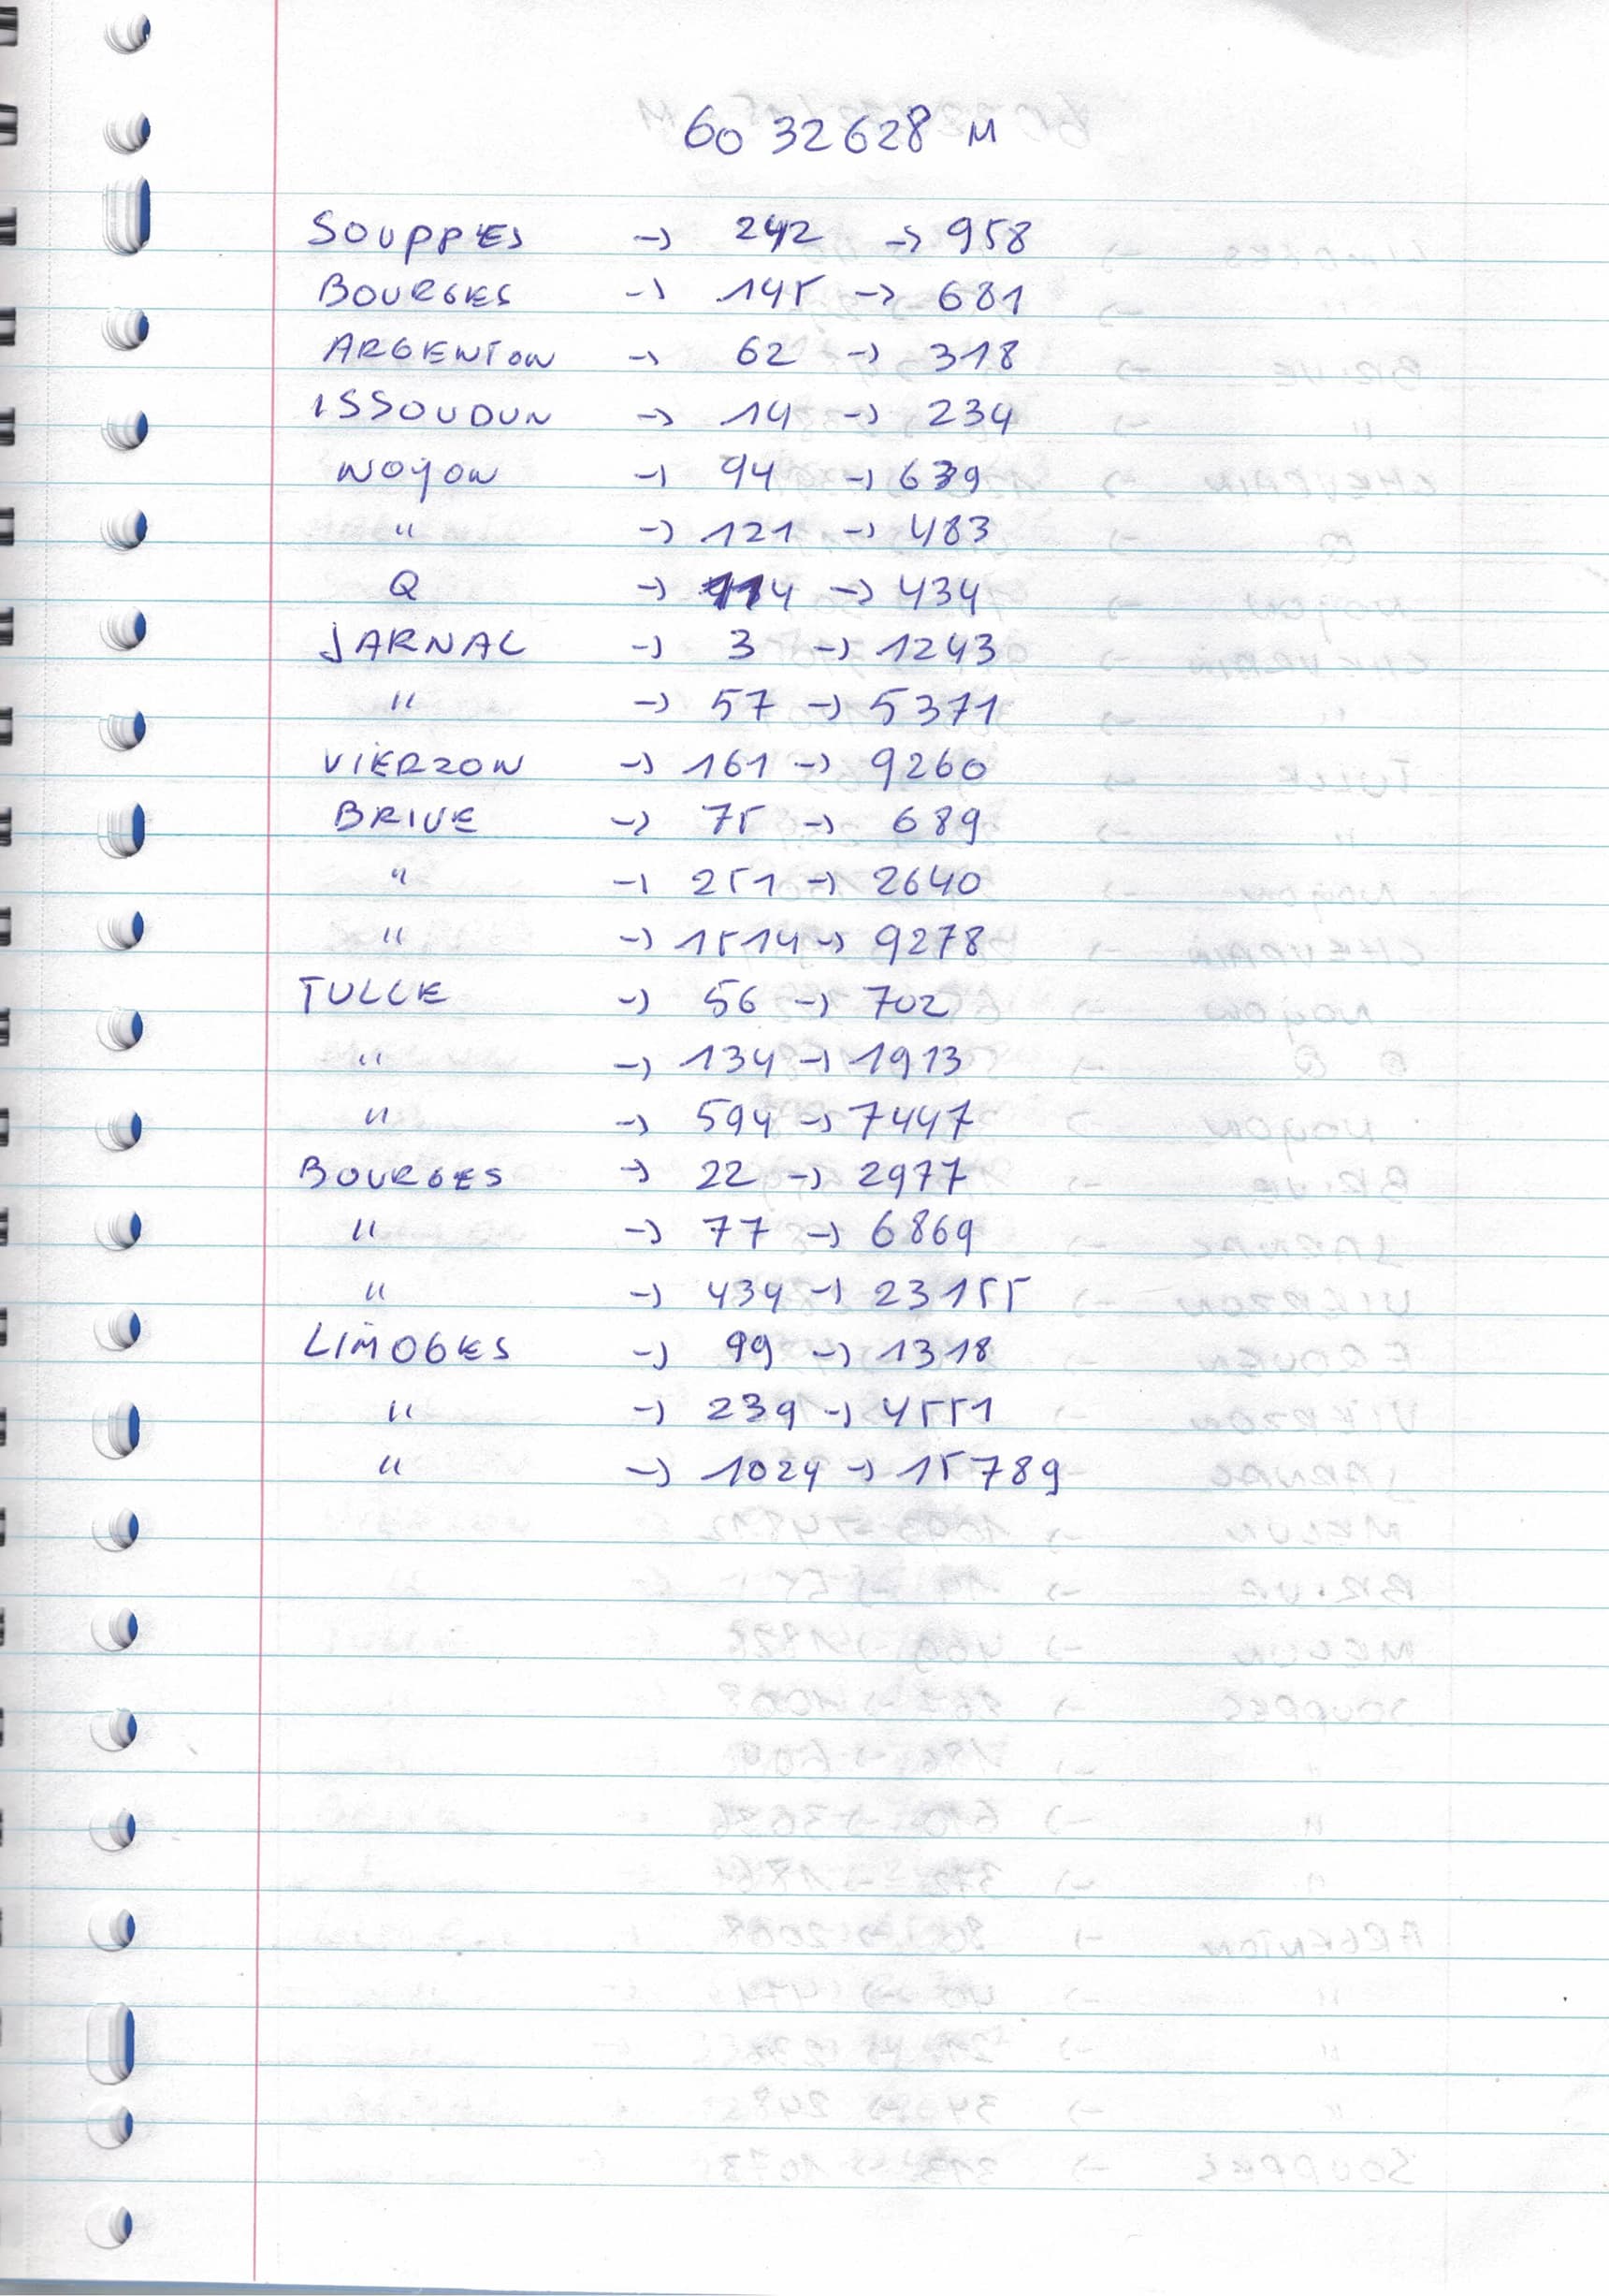 60 32628 M
SOUPPES -> 242 -> 958
BOURGES -> 145 -> 681
ARGENTON -> 62 -> 318
ISSOUDUN -> 14 -> 234
NOYON -> 94 -> 639
" -> 121 -> 483
Q -> 114 -> 434
JARNAC -> 3 -> 1243
" -> 57 -> 5371
VIERZON -> 161 -> 9260
BRIVE -> 75 -> 689
" -> 251 -> 2640
" -> 1514 -> 9278
TULLE -> 56 -> 702
" -> 134 -> 1913
" -> 594 -> 7447
BOURGES -> 22 -> 2977
" -> 77 -> 6869
" -> 434 -> 23155
LIMOGES -> 99 -> 1318
" -> 239 -> 4551
" -> 1024 -> 15789